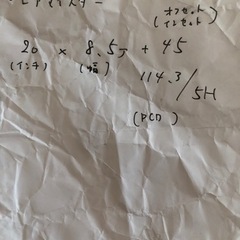 (オフセット
インセット)
20 × 8.5J + 45
(インチ) (幅)
114.3/5H
(PCD)